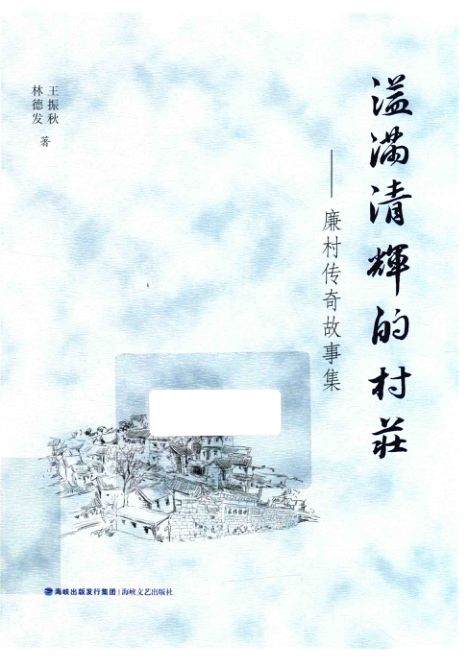 溢满清輝的村莊
——廉村传奇故事集
王振秋
林德发
著
海峡出版发行集团|海峡文艺出版社